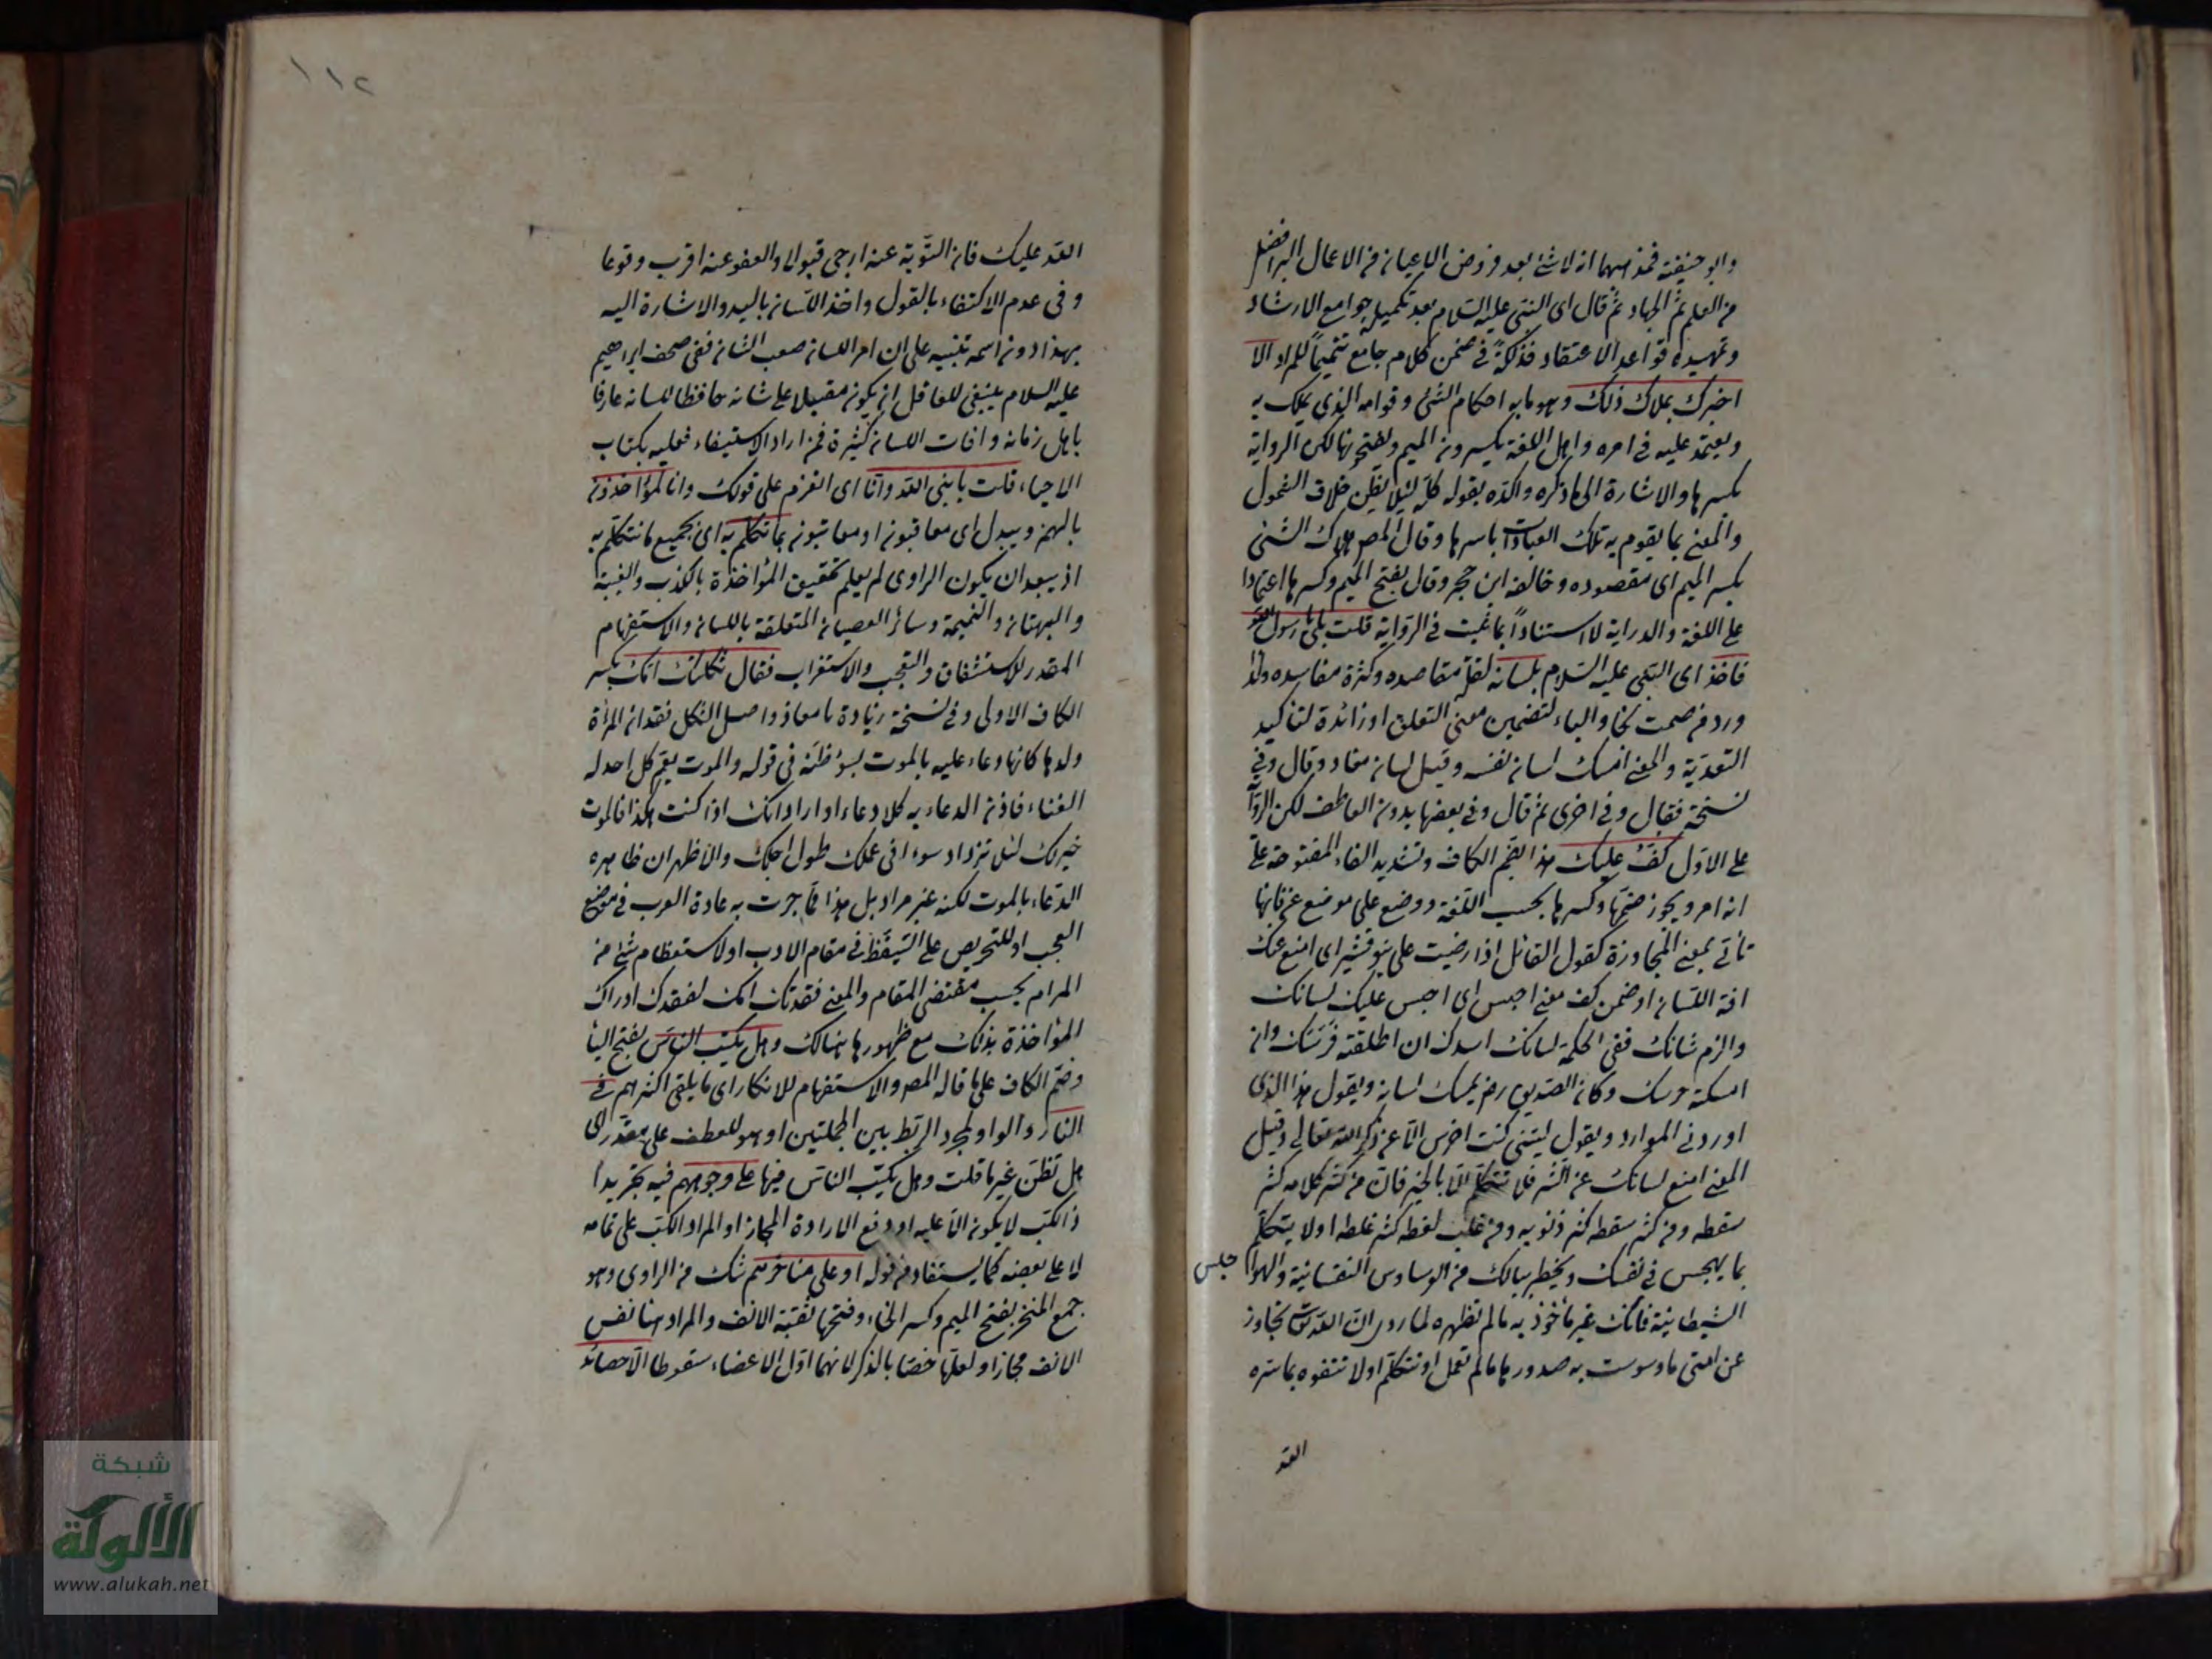 وابو حنيفة فمذهبهما انه لا شئ بعد فروض الاعيان من الاعمال البر افضل
من العلم ثم الجهاد ثم قال اى النبى عليه السلام بعد تكميله جوامع الارشاد
وتمهيده قواعد الاعتقاد فذلكة فى ضمن كلام جامع تتميما للمراد الا
اخبرك بملاك ذلك وهو ما به احكام الشئ وقوامه الذى يملك به
ويعتمد عليه فى امره واهل اللغة يكسرون الميم ويفتحونها لكن الرواية
بكسرها والاشارة الى ما ذكره واكده بقوله كله لئلا يظن خلاف الشمول
والمعنى بما يقوم به تلك العبادات باسرها وقال المص ملاك الشئ
بكسر الميم اى مقصوده وخالفه ابن حجر وقال بفتح الميم وكسرها اعتمادا
على اللغة والدراية لا استنادا بما ثبت فى الرواية قلت بلى يا رسول الله
فاخذ اى النبى عليه السلام بلسانه لقلة مقاصده وكثرة مفاسده ولذا
ورد من صمت نجا والباء لتضمين معنى التعلق او زائدة لتاكيد
التعدية والمعنى امسك لسان نفسه وقيل لسان معاذ وقال وفى
نسخة فقال وفى اخرى ثم قال وفى بعضها بدون العاطف لكن الروآ
على الاول كف عليك هذا بضم الكاف وتشديد الفاء المفتوحة على
انه امر ويجوز ضمها وكسرها بحسب اللغة ووضع على موضع عن فانها
تأتى بمعنى المجاوزة كقول القائل اذا رضيت على بنو قشير اى امنع عنك
افة اللسان او ضمن كف معنى احبس اى احبس عليك لسانك
والزم شانك ففى الحكمة لسانك اسدك ان اطلقته فرسك وان
امسكته حرسك وكان الصديق رض يمسك لسانه ويقول هذا الذى
اوردنى الموارد ويقول ليتنى كنت اخرس الا عن ذكر الله تعالى وقيل
المعنى امنع لسانك عن الشر فلا تتكلم الا بالخير فان من كثر كلامه كثر
سقطه ومن كثر سقطه كثر ذنوبه ومن غلب لغطه كثر غلطه او لا يتكلم
بما يهجس فى نفسك ويخطر ببالك من الوساوس النفسانية والهواجس
الشيطانية فانك غير مأخوذ به ما لم تظهره لما روى ان الله تع تجاوز
عن امتى ما وسوست به صدورها ما لم تعمل او تتكلم او لا تتفوه بما ستره
الله
١١٢
الله عليك فان التوبة عنه ارجى قبولا والعفو عنه اقرب وقوعا
وفى عدم الاكتفاء بالقول واخذ اللسان باليد والاشارة اليه
بهذا دون اسمه تنبيه على ان امر اللسان صعب الشان ففى صحف ابراهيم
عليه السلام ينبغى للعاقل ان يكون مقبلا على شانه حافظا للسانه عارفا
باهل زمانه وافات اللسان كثيرة فمن اراد الاستيفاء فعليه بكتاب
الاحياء قلت يا نبى الله وانا اى انعزم على قولك وانا لمؤاخذون
بالهمز ويبدل اى معاقبون او معاتبون بما نتكلم به اى بجميع ما نتكلم به
اذ يبعد ان يكون الراوى لم يعلم تحقيق المؤاخذة بالكذب والغيبة
والبهتان والنميمة وسائر العصيان المتعلقة باللسان والاستفهام
المقدر للاستثفاق والتعجب والاستغراب فقال ثكلتك امك بكسر
الكاف الاولى وفى نسخة زيادة يا معاذ واصل الثكل فقدان المرأة
ولدها كانها دعاء عليه بالموت بسوء ظنه فى قوله والموت يعم كل احد له
الفناء فاذن الدعاء به كلا دعاء او اراد انك اذا كنت هكذا فالموت
خير لك لئلا تزداد سوءا فى عملك طول اجلك والاظهر ان ظاهره
الدعاء بالموت لكنه غير مراد بل هذا مما جرت به عادة العرب فى موضع
العجب او للتحريص على التيقظ فى مقام الادب او لاستعظام شئ من
المرام بحسب مقتضى المقام والمعنى فقدتك امك لفقدك ادراك
المؤاخذة بذلك مع ظهورها هنالك وهل يكب الناس بفتح اليا
وضم الكاف على ما قاله المص والاستفهام للانكار اى ما يلقى اكثرهم فى
النار والواو لمجرد الربط بين الجملتين او هو للعطف على مقدر اى
هل تظن غير ما قلت وهل يكب الناس فيها على وجوههم فيه تجريد ا
ذ الكب لا يكون الا عليه او دفع الارادة المجاز او المراد الكب على تمامه
لا على بعضه كما يستفاد من قوله او على مناخرهم شك من الراوى وهو
جمع المنخر بفتح الميم وكسر الخاء وفتحها ثقبة الانف والمراد هنا نفس
الانف مجازا ولعلها خصا بالذكر لانهما اول الاعضاء سقوطا الا حصائد
شبكة
الألوكة
www.alukah.net